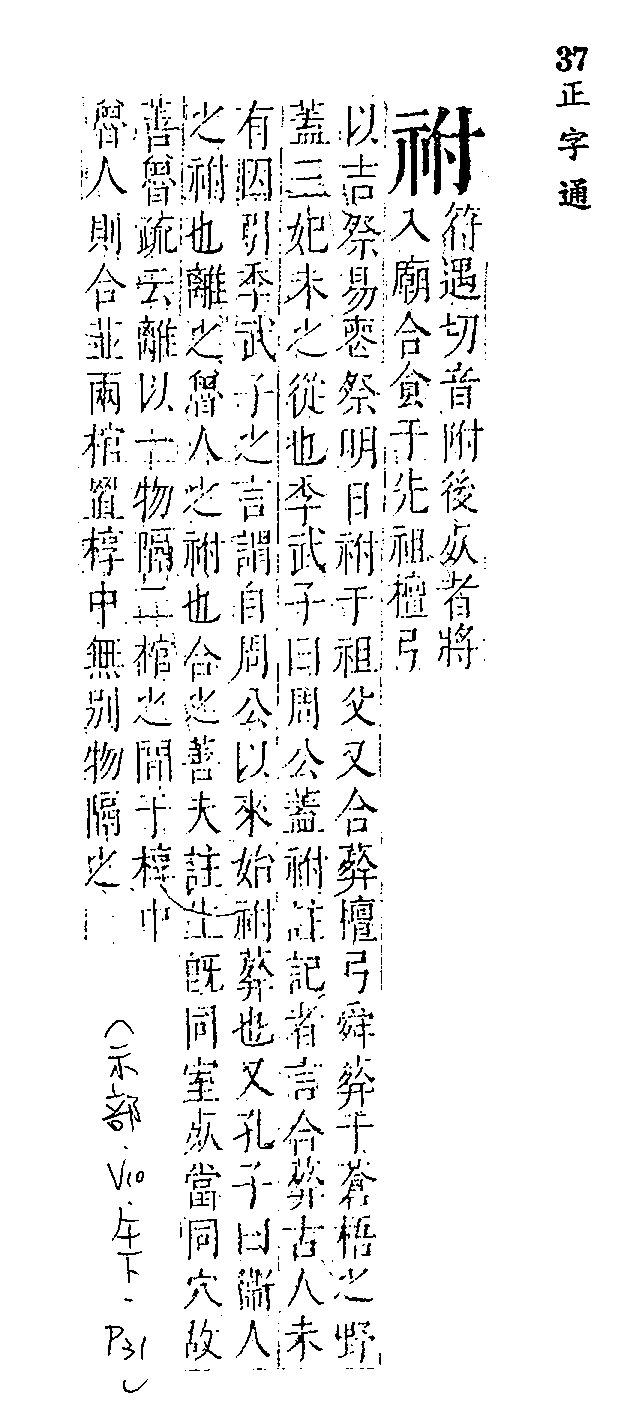 37 正字通
祔
符遇切音附後死者將
入廟合食于先祖檀弓
以吉祭易喪祭明日祔于祖父又合葬檀弓舜葬于蒼梧之野
蓋三妃未之從也季武子曰周公蓋祔註記者言合葬古人未
有因引季武子之言謂自周公以來始祔葬也又孔子曰衞人
之祔也離之魯人之祔也合之善夫註生旣同室死當同穴故
善魯疏云離以一物隔二棺之間于椁中
魯人則合並兩棺置椁中無別物隔之
(示部.V10.午下.P31)